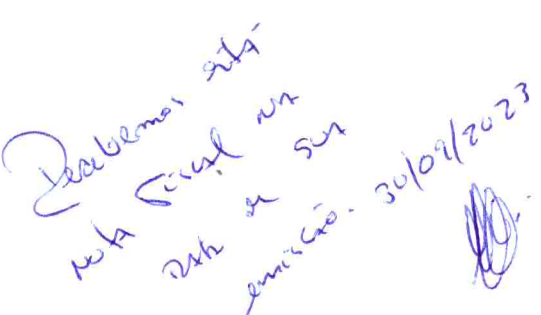 Recebemos esta
nota Fiscal na
Data de sua
emissão. 30/09/2023